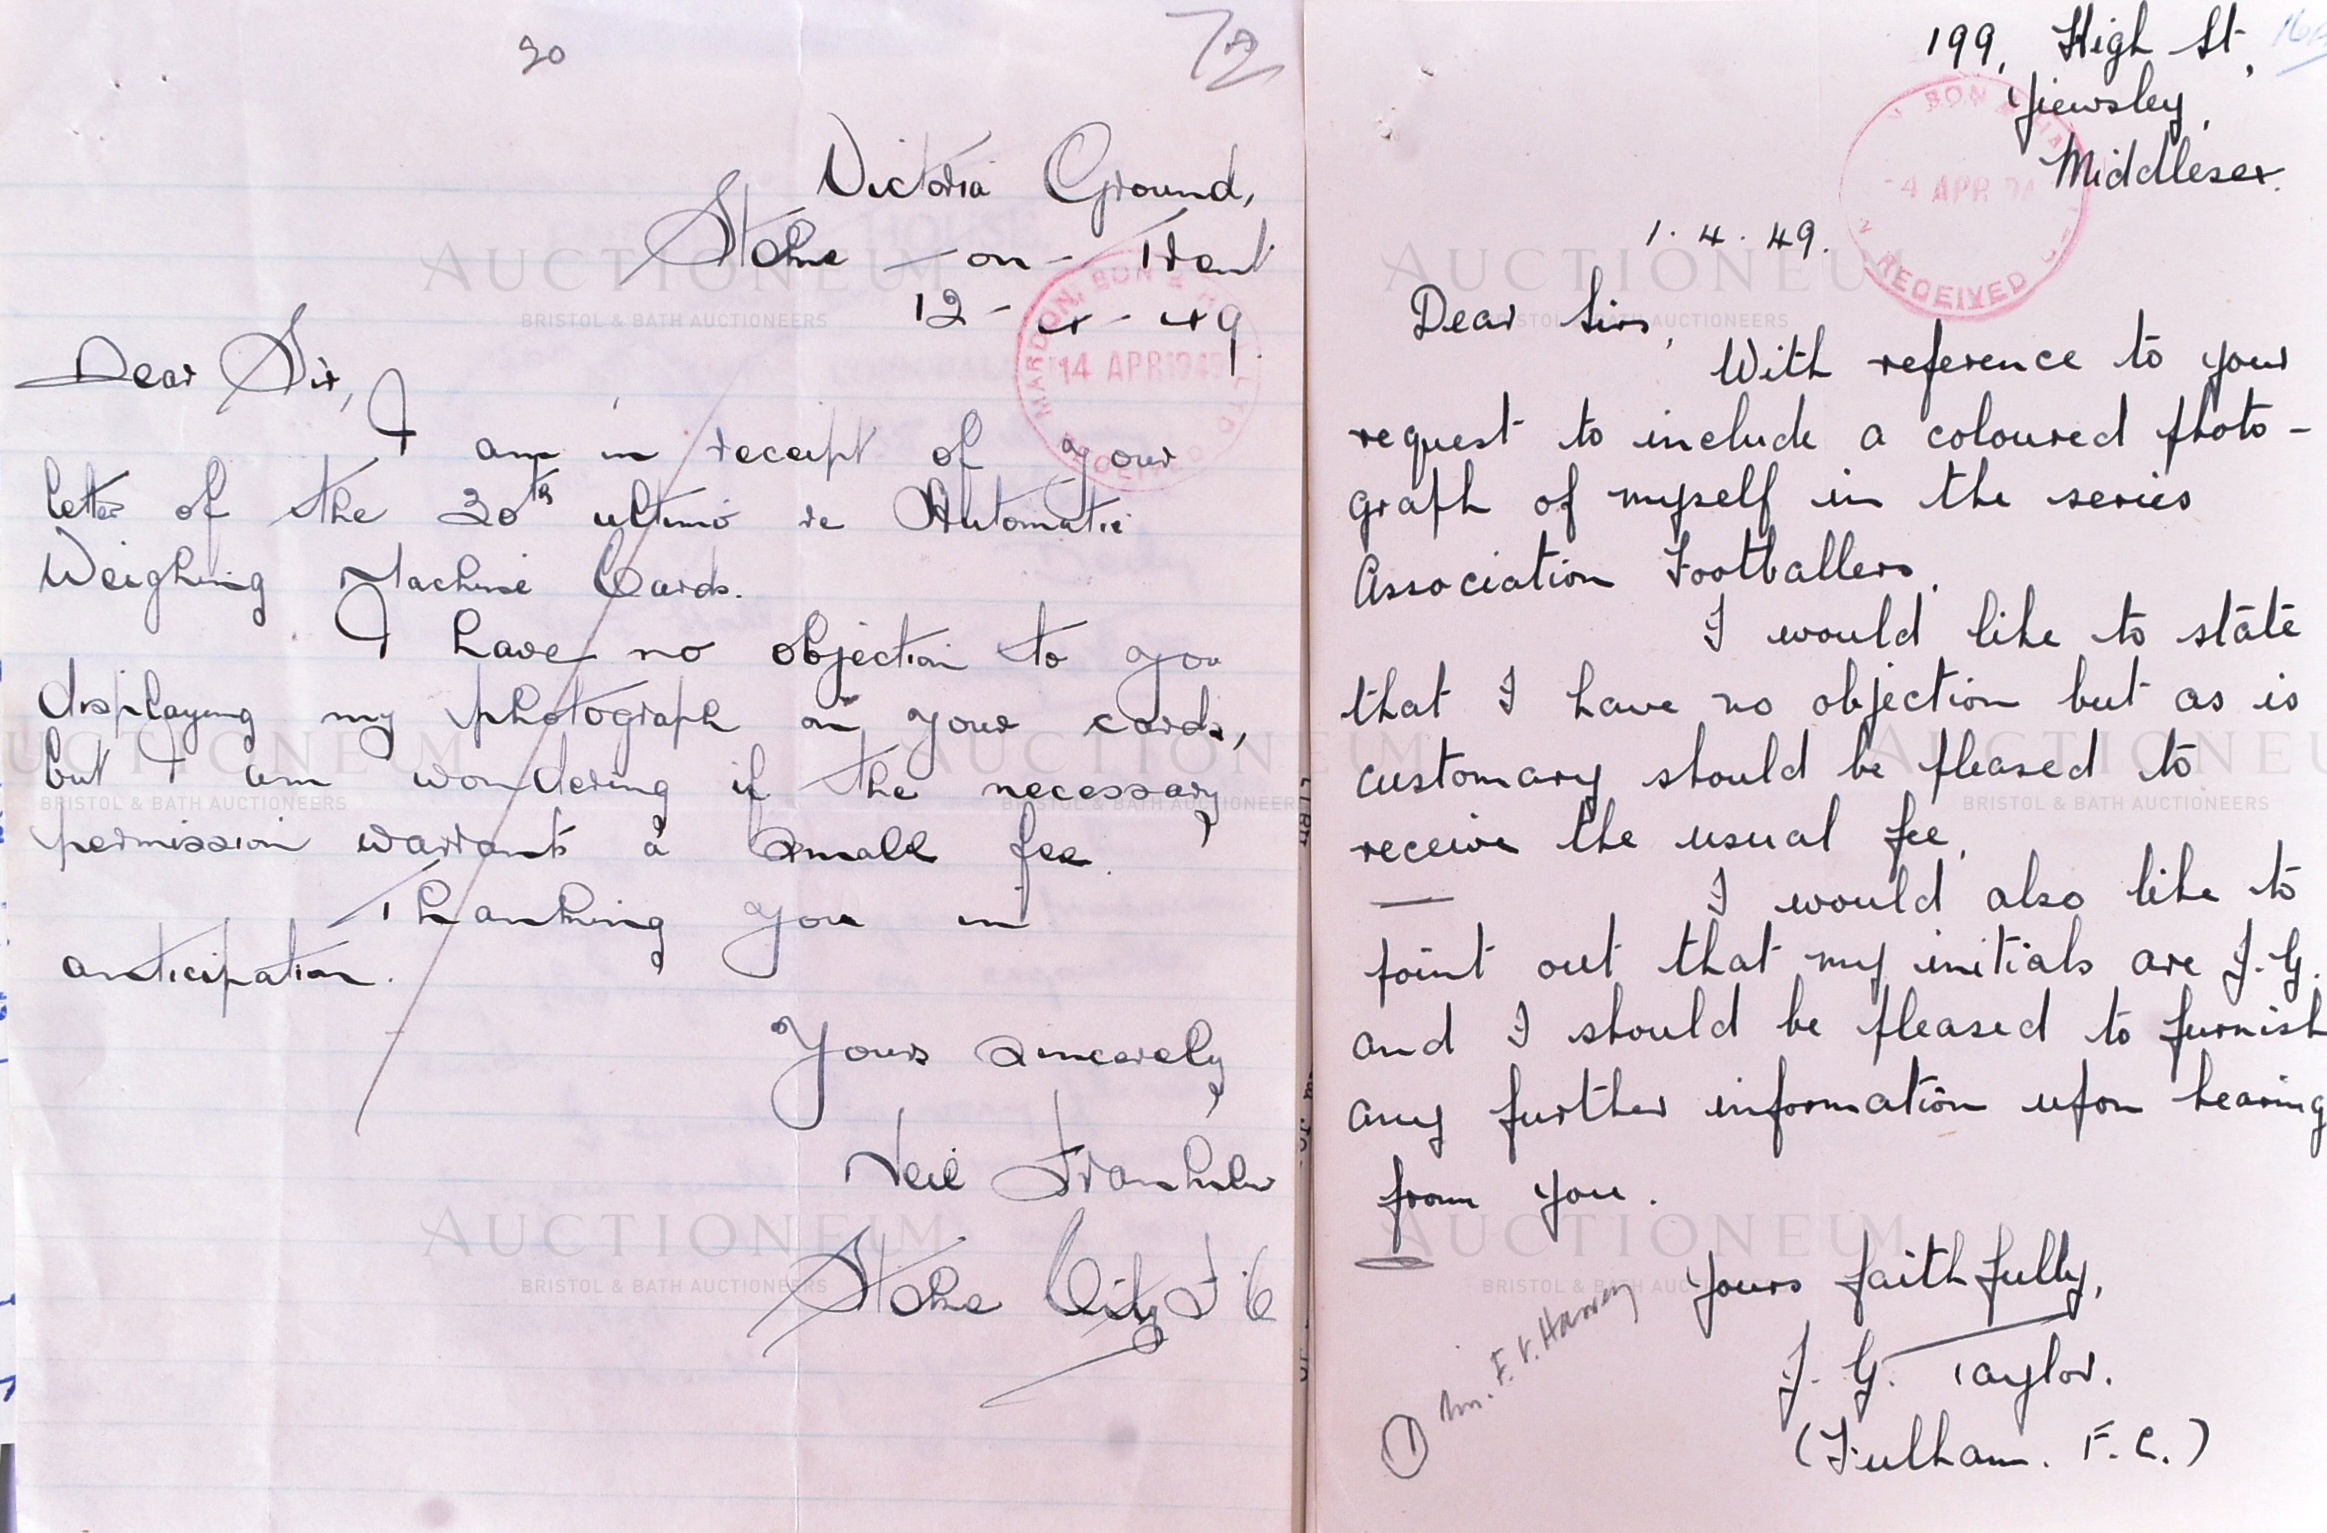 20
72
Victoria Ground,
Stoke - on - Trent
12 - 4 - 49.
MARDON, SON & HALL LTD
14 APR 1949
RECEIVED
Dear Sir,
I am in receipt of your
letter of the 30th ultimo re Automatic
Weighing Machine Cards.
I have no objection to you
displaying my photograph on your cards,
but I am wondering if the necessary
permission warrants a small fee.
Thanking you in
anticipation.
Yours sincerely,
Neil Franklin
Stoke City F.C
199, High St,
Yiewsley,
Middlesex.
SON &
4 APR
RECEIVED
1. 4. 49.
Dear Sirs,
With reference to your
request to include a coloured photo-
graph of myself in the series
Association Footballers.
I would like to state
that I have no objection but as is
customary should be pleased to
receive the usual fee.
I would also like to
point out that my initials are J.G.
and I should be pleased to furnish
any further information upon hearing
from you.
Yours faithfully,
J. G. Taylor.
(Fulham. F.C.)
1 Mr. F. V. Harvey
AUCTIONEUM
BRISTOL & BATH AUCTIONEERS